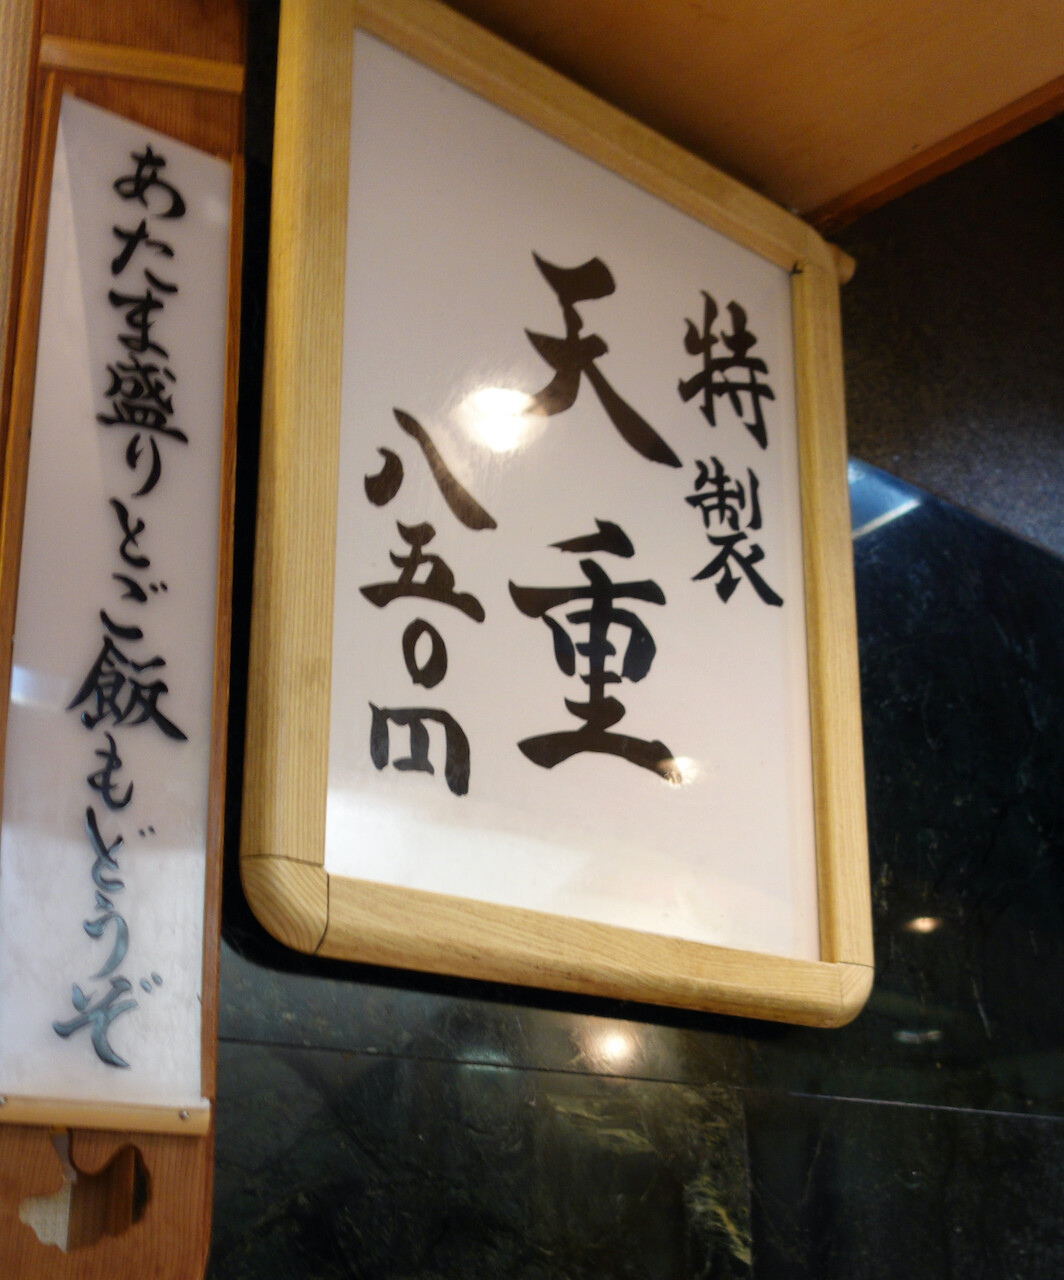 特製
天重
八五〇円
あたま盛りとご飯もどうぞ